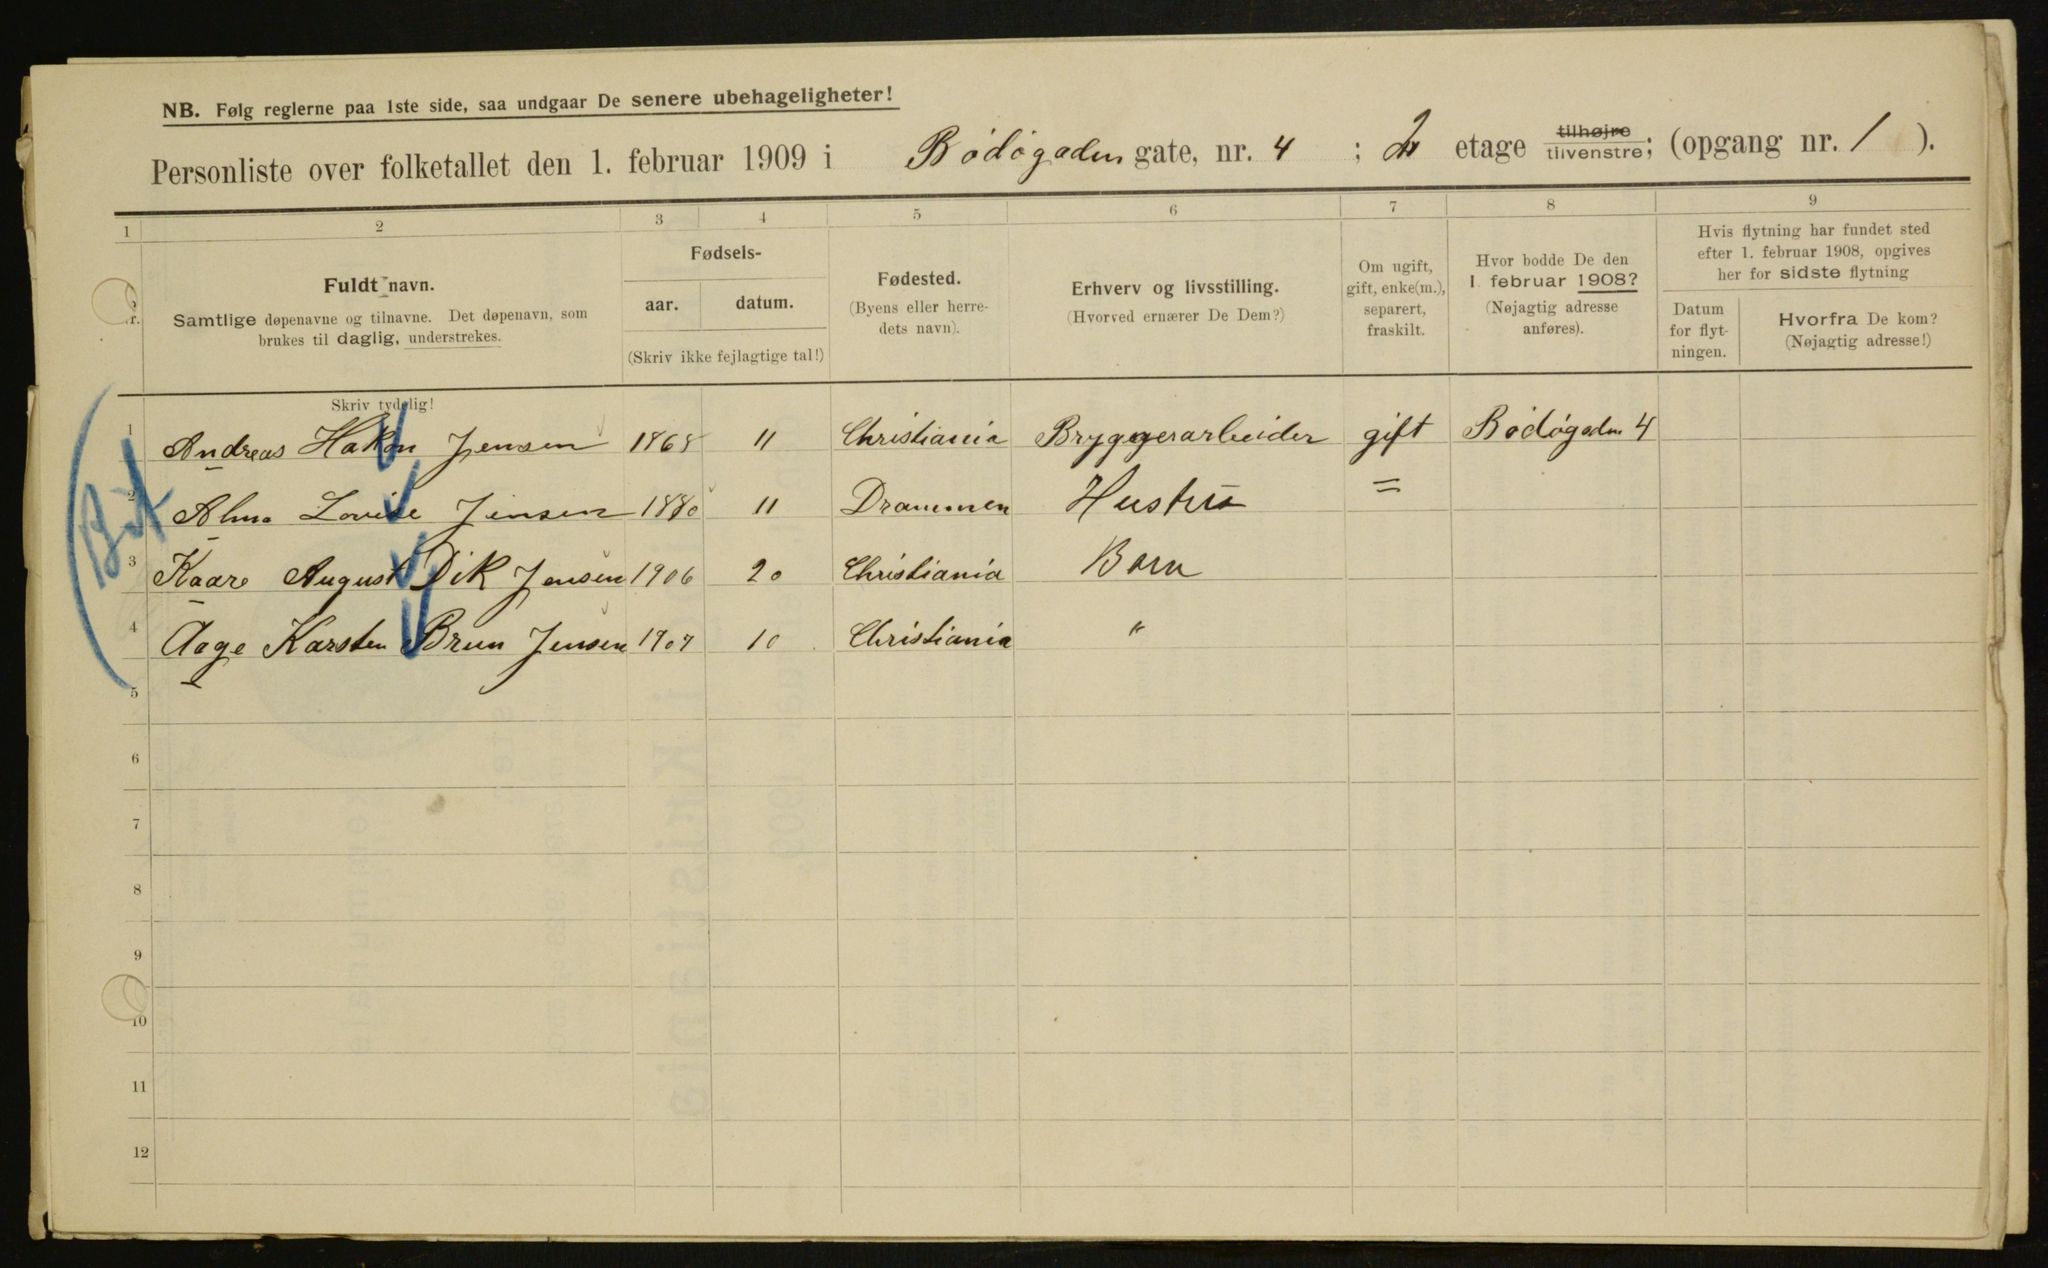 NB. Følg reglerne paa 1ste side, saa undgaar De senere ubehageligheter!
Personliste over folketallet den 1. februar 1909 i Bodøgaden gate, nr. 4 ; 2 etage tilhøjre tilvenstre; (opgang nr. 1 ).
1 2 3 4 5 6 7 8 9
Fuldt navn.
Samtlige døpenavne og tilnavne. Det døpenavn, som
brukes til daglig, understrekes.
Fødsels-
aar. datum.
(Skriv ikke fejlagtige tal!)
Fødested.
(Byens eller herre-
dets navn).
Erhverv og livsstilling.
(Hvorved ernærer De Dem?)
Om ugift,
gift, enke(m.),
separert,
fraskilt.
Hvor bodde De den
1. februar 1908?
(Nøjagtig adresse
anføres).
Hvis flytning har fundet sted
efter 1. februar 1908, opgives
her for sidste flytning
Datum
for flyt-
ningen.
Hvorfra De kom?
(Nøjagtig adresse!)
Skriv tydelig!
1 Andreas Hakon Jensen 1868 11 Christiania Bryggerarbeider gift Bodøgaden 4
2 Alma Lovise Jensen 1880 11 Drammen Hustru =
3 Kaare August Dik Jensen 1906 20 Christiania Barn
4 Aage Karsten Brun Jensen 1907 10 Christiania "
5
6
7
8
9
10
11
12